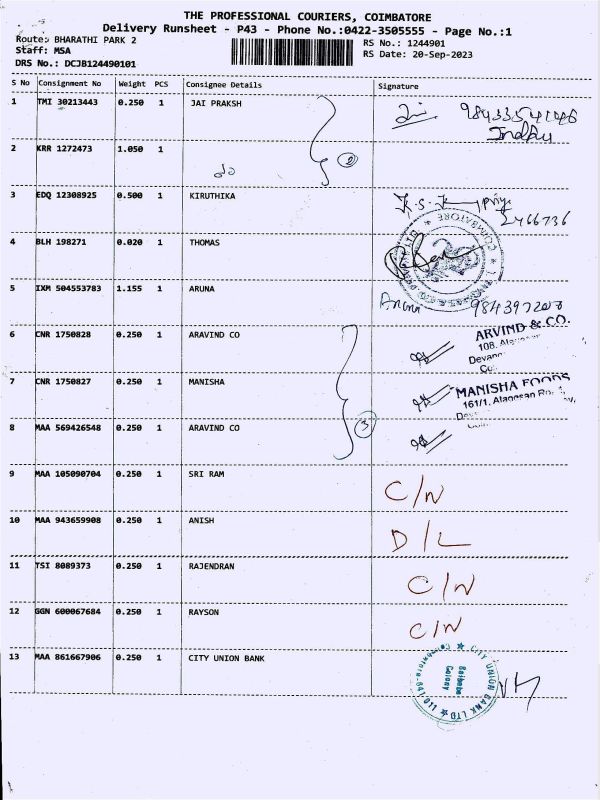 THE PROFESSIONAL COURIERS, COIMBATORE
Delivery Runsheet - P43 - Phone No.:0422-3505555 - Page No.:1
Route: BHARATHI PARK 2 RS No.: 1244901
Staff: MSA RS Date: 20-Sep-2023
DRS No.: DCJB124490101
S No Consignment No Weight PCS Consignee Details Signature
1 TMI 30213443 0.250 1 JAI PRAKSH
2 KRR 1272473 1.050 1
do 2
3 EDQ 12308925 0.500 1 KIRUTHIKA
2466736
4 BLH 198271 0.020 1 THOMAS
5 IXM 504553783 1.155 1 ARUNA Aruna
6 CNR 1750828 0.250 1 ARAVIND CO ARVIND & CO.
7 CNR 1750827 0.250 1 MANISHA MANISHA FOODS
161/1, Alagesan
8 MAA 569426548 0.250 1 ARAVIND CO
3
9 MAA 105090704 0.250 1 SRI RAM C/N
10 MAA 943659908 0.250 1 ANISH D/L
11 TSI 8089373 0.250 1 RAJENDRAN C/N
12 GGN 600067684 0.250 1 RAYSON C/N
13 MAA 861667906 0.250 1 CITY UNION BANK CITY UNION BANK LTD
Saibaba
Colony